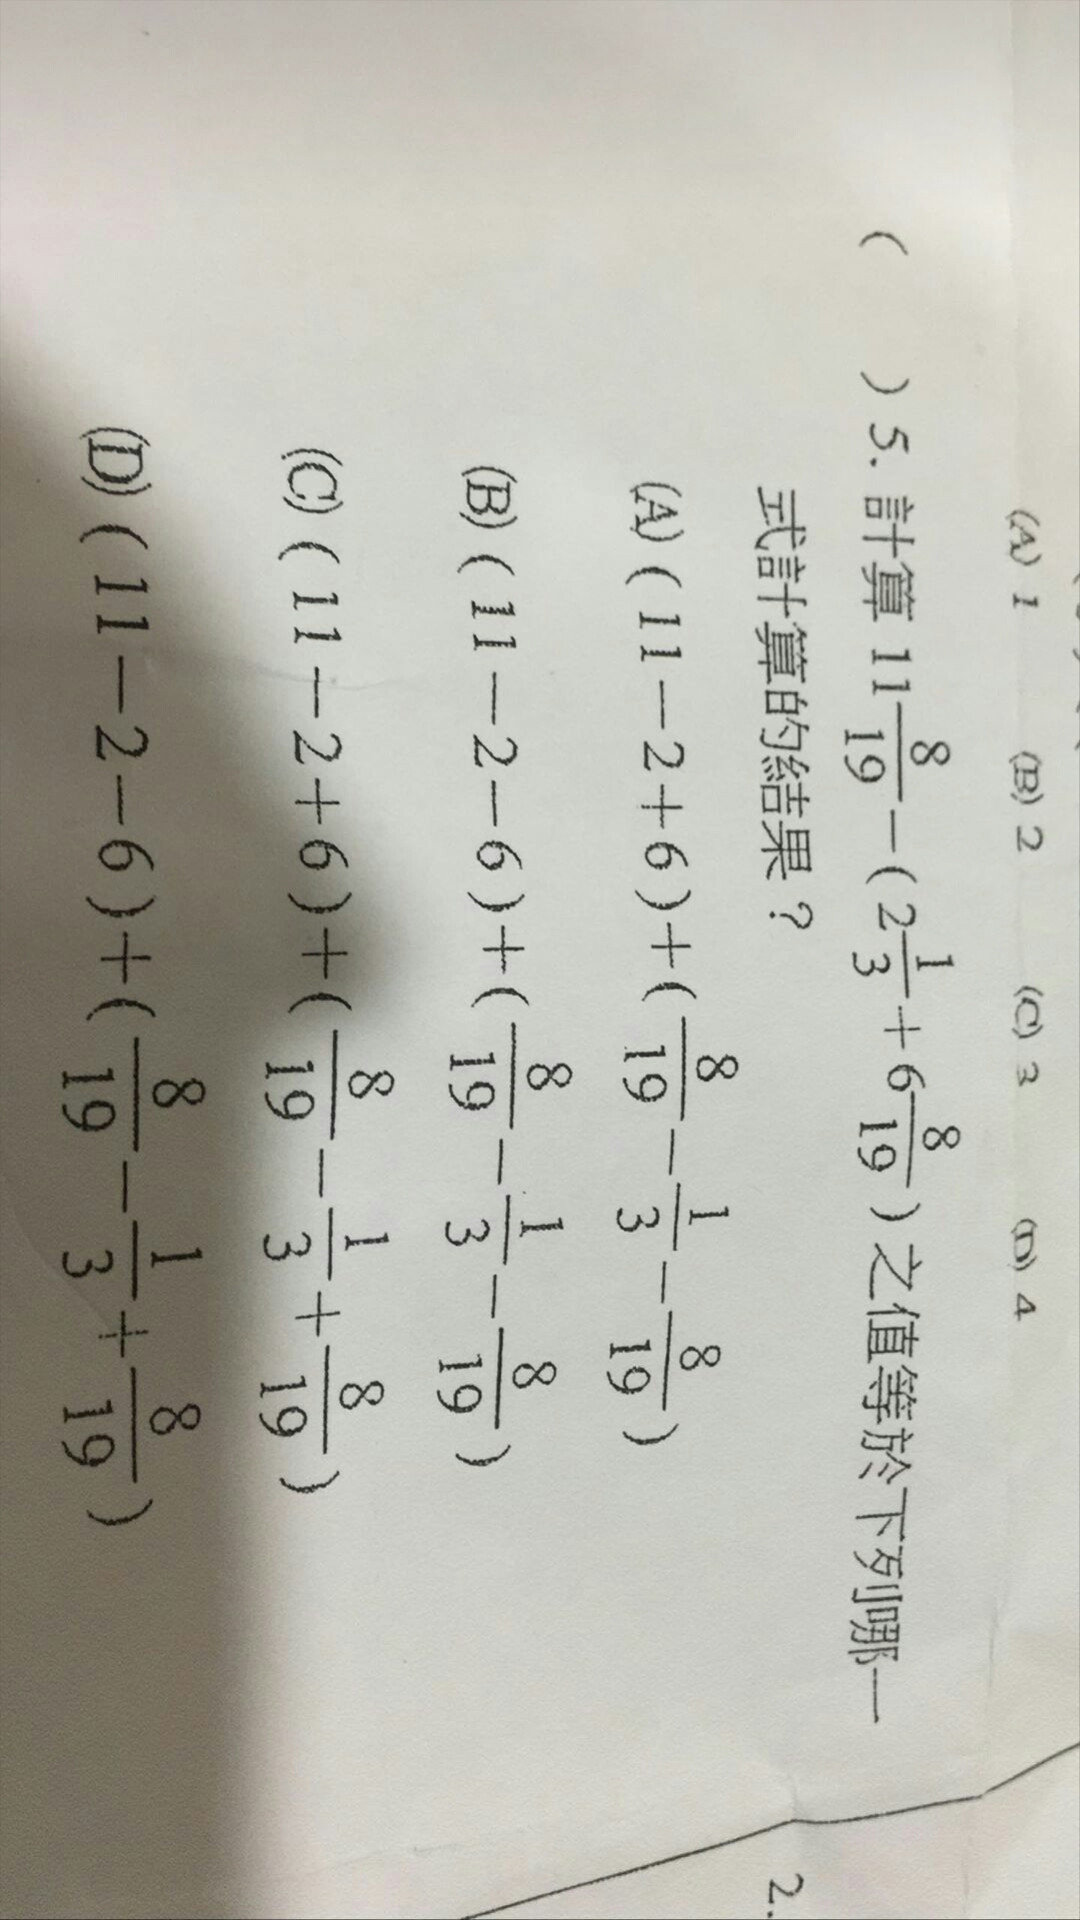 (A) 1 (B) 2 (C) 3 (D) 4
( ) 5. 計算 11 8/19 －( 2 1/3 ＋ 6 8/19 ) 之值等於下列哪一
式計算的結果？
(A) ( 11 － 2 ＋ 6 ) ＋ ( 8/19 － 1/3 － 8/19 )
(B) ( 11 － 2 － 6 ) ＋ ( 8/19 － 1/3 － 8/19 )
(C) ( 11 － 2 ＋ 6 ) ＋ ( 8/19 － 1/3 ＋ 8/19 )
(D) ( 11 － 2 － 6 ) ＋ ( 8/19 － 1/3 ＋ 8/19 )
2.